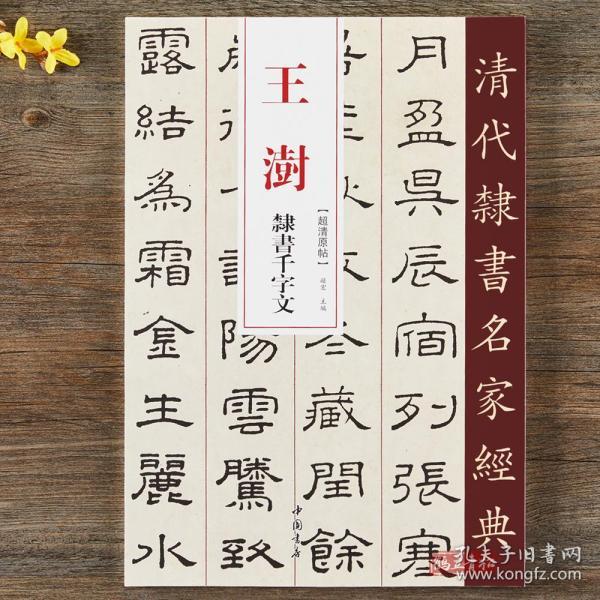 清代隸書名家經典
王澍
隸書千字文
【超清原帖】
主編
月盈昃辰宿列張寒
藏閏餘
陽雲騰致
露結為霜金生麗水
中国書店
孔夫子旧书网
www.kongfz.com